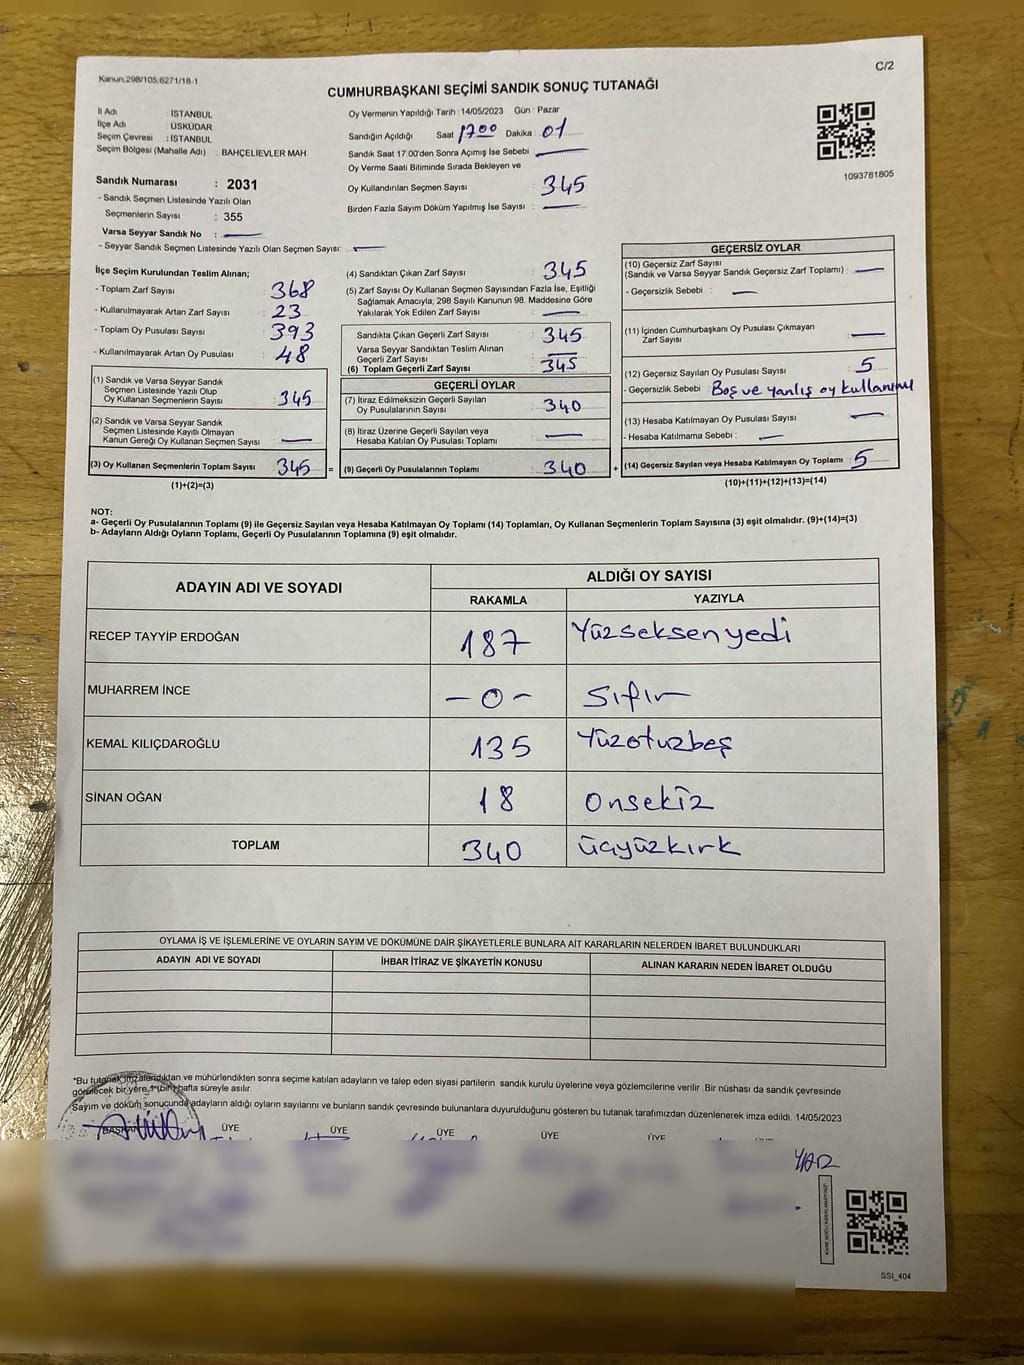 Kanun,298/105,6271/18-1
C/2
CUMHURBAŞKANI SEÇİMİ SANDIK SONUÇ TUTANAĞI
İl Adı : İSTANBUL
İlçe Adı : ÜSKÜDAR
Seçim Çevresi : İSTANBUL
Seçim Bölgesi (Mahalle Adı) : BAHÇELİEVLER MAH.
Oy Vermenin Yapıldığı Tarih : 14/05/2023 Gün : Pazar
Sandığın Açıldığı Saat 17 00 Dakika : 01
Sandık Saat 17:00'den Sonra Açımış İse Sebebi
Oy Verme Saati Bitiminde Sırada Bekleyen ve
Oy Kullandırılan Seçmen Sayısı : 345
Birden Fazla Sayım Döküm Yapılmış İse Sayısı :
1093781805
Sandık Numarası : 2031
- Sandık Seçmen Listesinde Yazılı Olan
Seçmenlerin Sayısı : 355
Varsa Seyyar Sandık No :
- Seyyar Sandık Seçmen Listesinde Yazılı Olan Seçmen Sayısı:
İlçe Seçim Kurulundan Teslim Alınan;
- Toplam Zarf Sayısı : 368
- Kullanılmayarak Artan Zarf Sayısı : 23
- Toplam Oy Pusulası Sayısı : 393
- Kullanılmayarak Artan Oy Pusulası : 48
(1) Sandık ve Varsa Seyyar Sandık
Seçmen Listesinde Yazılı Olup
Oy Kullanan Seçmenlerin Sayısı : 345
(2) Sandık ve Varsa Seyyar Sandık
Seçmen Listesinde Kayıtlı Olmayan
Kanun Gereği Oy Kullanan Seçmen Sayısı :
(3) Oy Kullanan Seçmenlerin Toplam Sayısı : 345 =
(1)+(2)=(3)
(4) Sandıktan Çıkan Zarf Sayısı : 345
(5) Zarf Sayısı Oy Kullanan Seçmen Sayısından Fazla İse, Eşitliği
Sağlamak Amacıyla; 298 Sayılı Kanunun 98. Maddesine Göre
Yakılarak Yok Edilen Zarf Sayısı :
Sandıkta Çıkan Geçerli Zarf Sayısı : 345
Varsa Seyyar Sandıktan Teslim Alınan
Geçerli Zarf Sayısı :
(6) Toplam Geçerli Zarf Sayısı : 345
GEÇERLİ OYLAR
(7) İtiraz Edilmeksizin Geçerli Sayılan
Oy Pusulalarının Sayısı : 340
(8) İtiraz Üzerine Geçerli Sayılan veya
Hesaba Katılan Oy Pusulası Toplamı :
(9) Geçerli Oy Pusulalarının Toplamı : 340 +
GEÇERSİZ OYLAR
(10) Geçersiz Zarf Sayısı
(Sandık ve Varsa Seyyar Sandık Geçersiz Zarf Toplamı) :
- Geçersizlik Sebebi :
(11) İçinden Cumhurbaşkanı Oy Pusulası Çıkmayan
Zarf Sayısı :
(12) Geçersiz Sayılan Oy Pusulası Sayısı : 5
- Geçersizlik Sebebi : Boş ve yanlış oy kullanımı
(13) Hesaba Katılmayan Oy Pusulası Sayısı :
- Hesaba Katılmama Sebebi :
(14) Geçersiz Sayılan veya Hesaba Katılmayan Oy Toplamı : 5
(10)+(11)+(12)+(13)=(14)
NOT:
a- Geçerli Oy Pusulalarının Toplamı (9) ile Geçersiz Sayılan veya Hesaba Katılmayan Oy Toplamı (14) Toplamları, Oy Kullanan Seçmenlerin Toplam Sayısına (3) eşit olmalıdır. (9)+(14)=(3)
b- Adayların Aldığı Oyların Toplamı, Geçerli Oy Pusulalarının Toplamına (9) eşit olmalıdır.
ADAYIN ADI VE SOYADI
ALDIĞI OY SAYISI
RAKAMLA YAZIYLA
RECEP TAYYİP ERDOĞAN 187 Yüzseksenyedi
MUHARREM İNCE - 0 - Sıfır
KEMAL KILIÇDAROĞLU 135 Yüzotuzbeş
SİNAN OĞAN 18 Onsekiz
TOPLAM 340 üçyüzkırk
OYLAMA İŞ VE İŞLEMLERİNE VE OYLARIN SAYIM VE DÖKÜMÜNE DAİR ŞİKAYETLERLE BUNLARA AİT KARARLARIN NELERDEN İBARET BULUNDUKLARI
ADAYIN ADI VE SOYADI İHBAR İTİRAZ VE ŞİKAYETİN KONUSU ALINAN KARARIN NEDEN İBARET OLDUĞU
*Bu tutanak imzalandıktan ve mühürlendikten sonra seçime katılan adayların ve talep eden siyasi partilerin sandık kurulu üyelerine veya gözlemcilerine verilir .Bir nüshası da sandık çevresinde
görülecek bir yere 1 (bir) hafta süreyle asılır.
Sayım ve döküm sonucunda adayların aldığı oyların sayılarını ve bunların sandık çevresinde bulunanlara duyurulduğunu gösteren bu tutanak tarafımızdan düzenlenerek imza edildi. 14/05/2023
BAŞKAN ÜYE ÜYE ÜYE ÜYE ÜYE
SSI_404